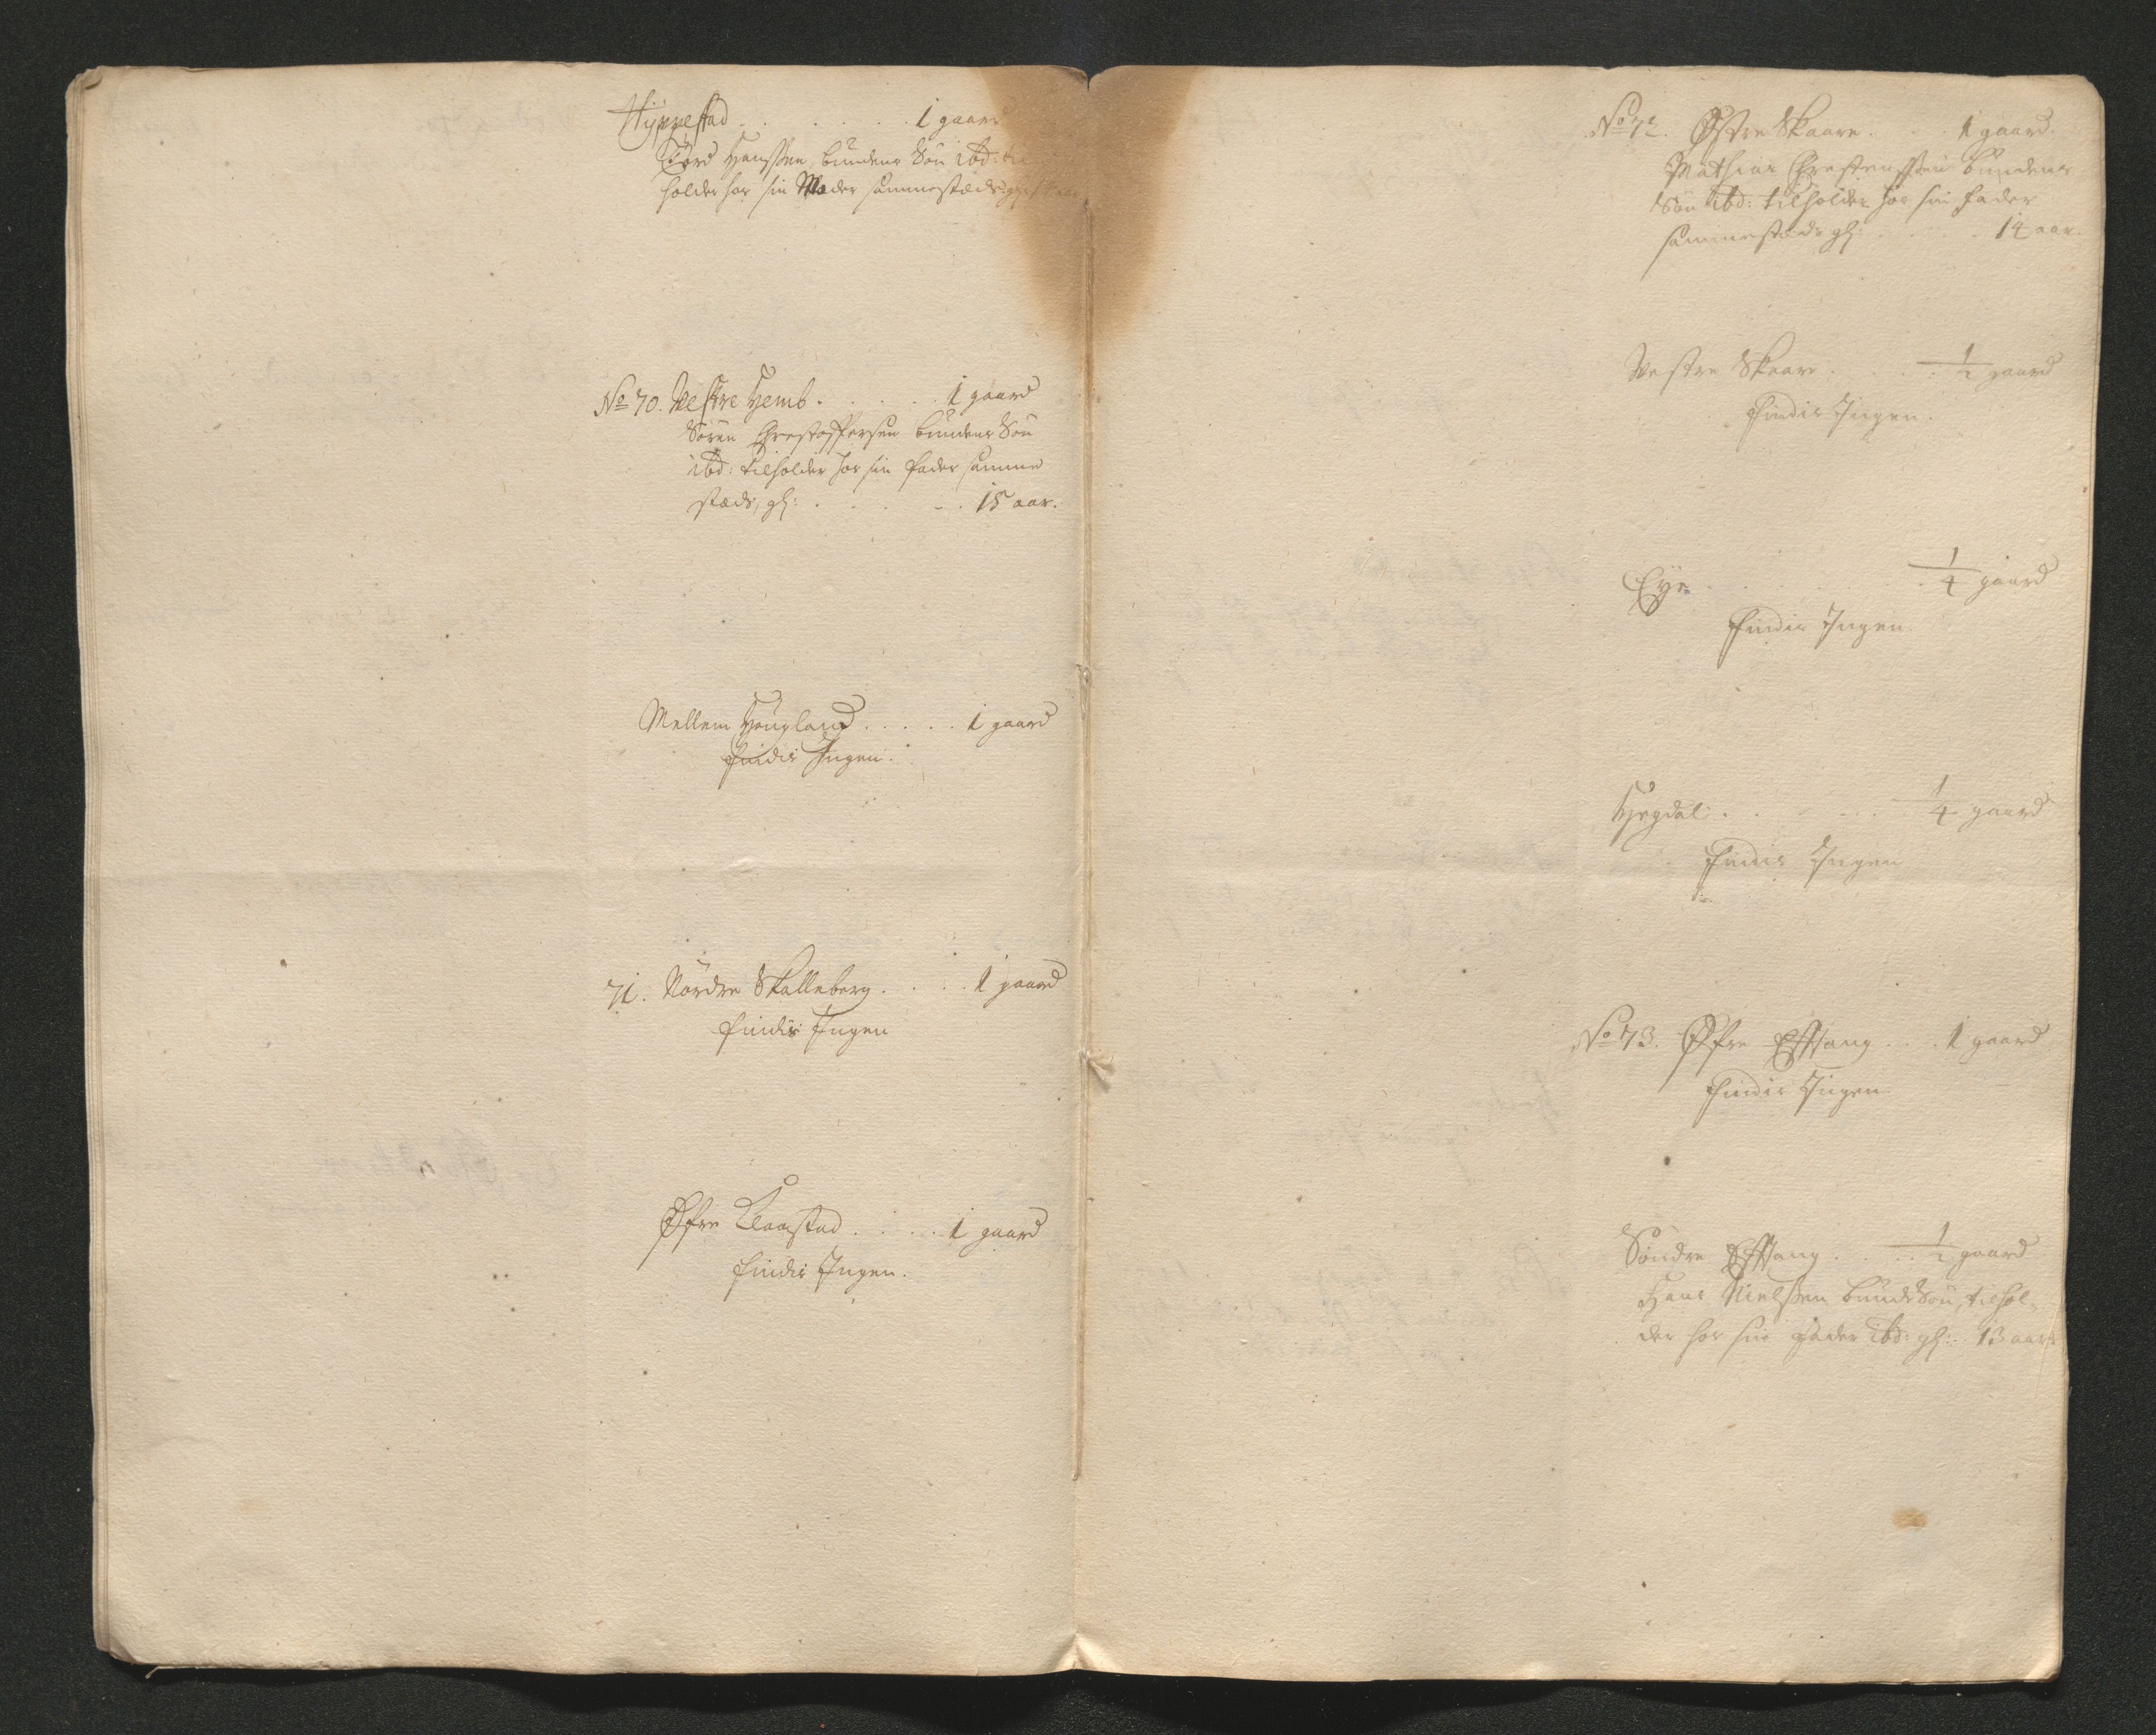 Hyppestad . . . . . . 1 gaard
Tord Hanssen, bundens Søn ibd: til
holder hos sin Moder sammestæds gl:
No 70. Vestre Hemb . . . . . 1 gaard
Sören Christoffersen bundens Søn
ibd: tilholder hos sin fader samme
stæds, gl: . . . . . 15 aar.
Mellem Hougland . . . . . 1 gaard
findis Ingen.
71. Nordre Skalleberg . . . . 1 gaard
findis Ingen
Øfre Klaastad . . . . 1 gaard
findis Ingen.
No 72. Østre Skaare . . . 1 gaard
Mathias Christenssen bundens
Søn ibd: tilholder hos sin fader
sammestæds gl: . . . . 14 aar.
Vestre Skaare . . . . 1/2 gaard
findis Ingen.
Eye . . . . . . 1/4 gaard
findis Ingen.
Hegdal . . . . . 1/4 gaard
findis Ingen
No 73. Øfre Efftang . . . 1 gaard
findis Ingen
Söndre Efftang . . . . 1/2 gaard
Hans Nielssen bunde Søn, tilhol-
der hos sin fader ibd: gl: 13 aar